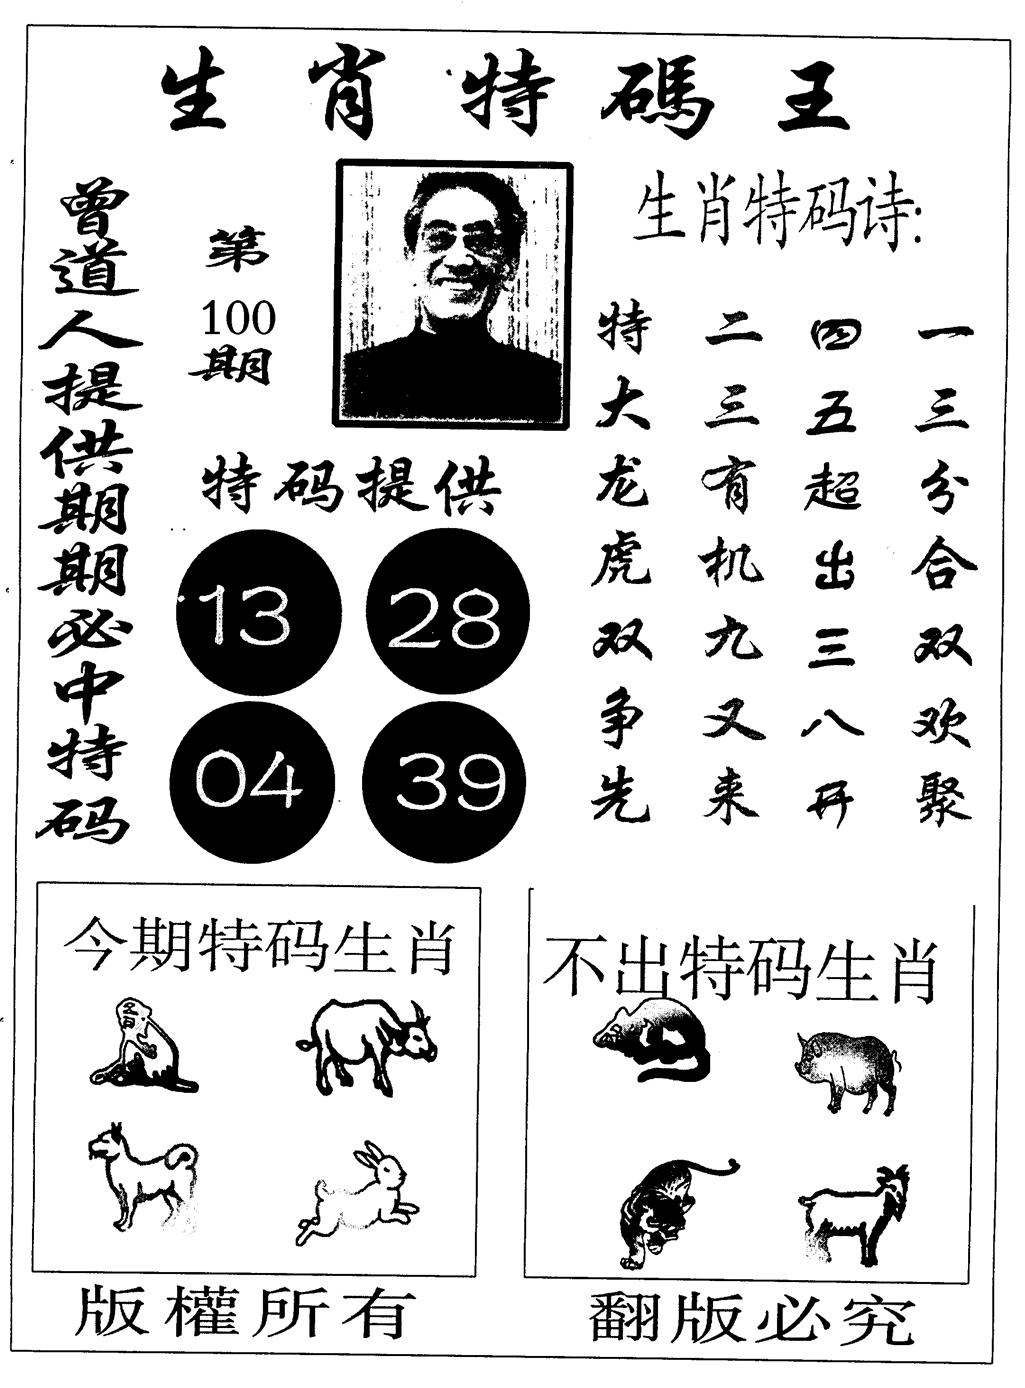 生肖特碼王
曾道人提供期期必中特码
第
100
期
生肖特码诗:
一三分合双欢聚
四五超出三八开
二三有机九又来
特大龙虎双争先
特码提供
13
28
04
39
今期特码生肖
不出特码生肖
版權所有
翻版必究